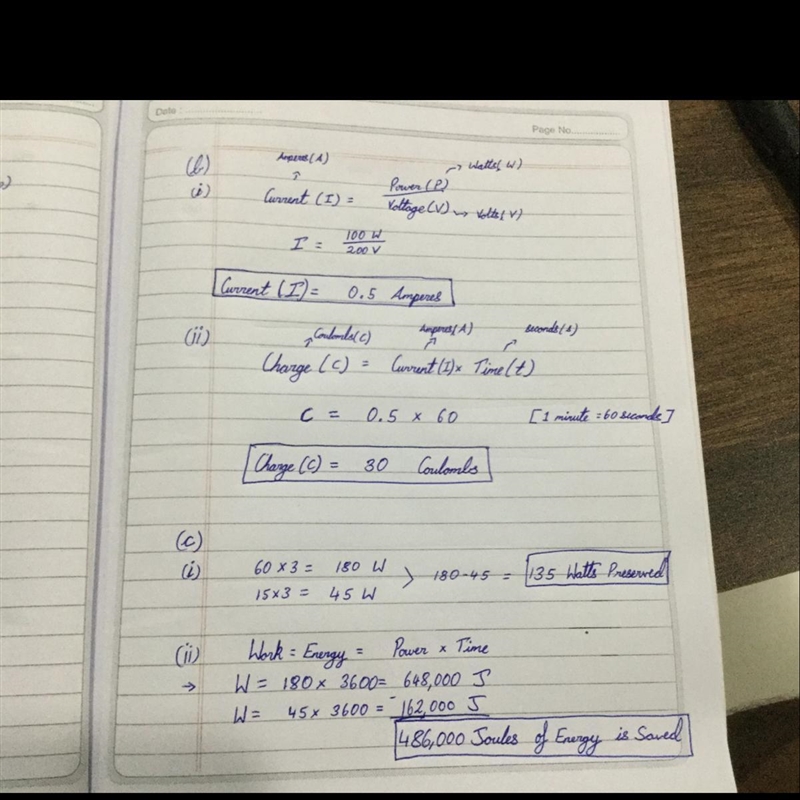 Date :
Page No.
(b)
Amperes(A)
Watts(W)
(i) Current (I) = Power(P) / Voltage(V) → Volts(V)
I = 100 W / 200 V
Current (I) = 0.5 Amperes
(ii)
Coulombs(C) Amperes(A) seconds(s)
Charge (C) = Current(I) × Time(t)
C = 0.5 × 60 [1 minute = 60 seconds]
Charge (C) = 30 Coulombs
(c)
(i) 60 × 3 = 180 W
15 × 3 = 45 W > 180-45 = 135 Watts Preserved
(ii) Work = Energy = Power × Time
→ W = 180 × 3600 = 648,000 J
W = 45 × 3600 = -162,000 J
486,000 Joules of Energy is Saved